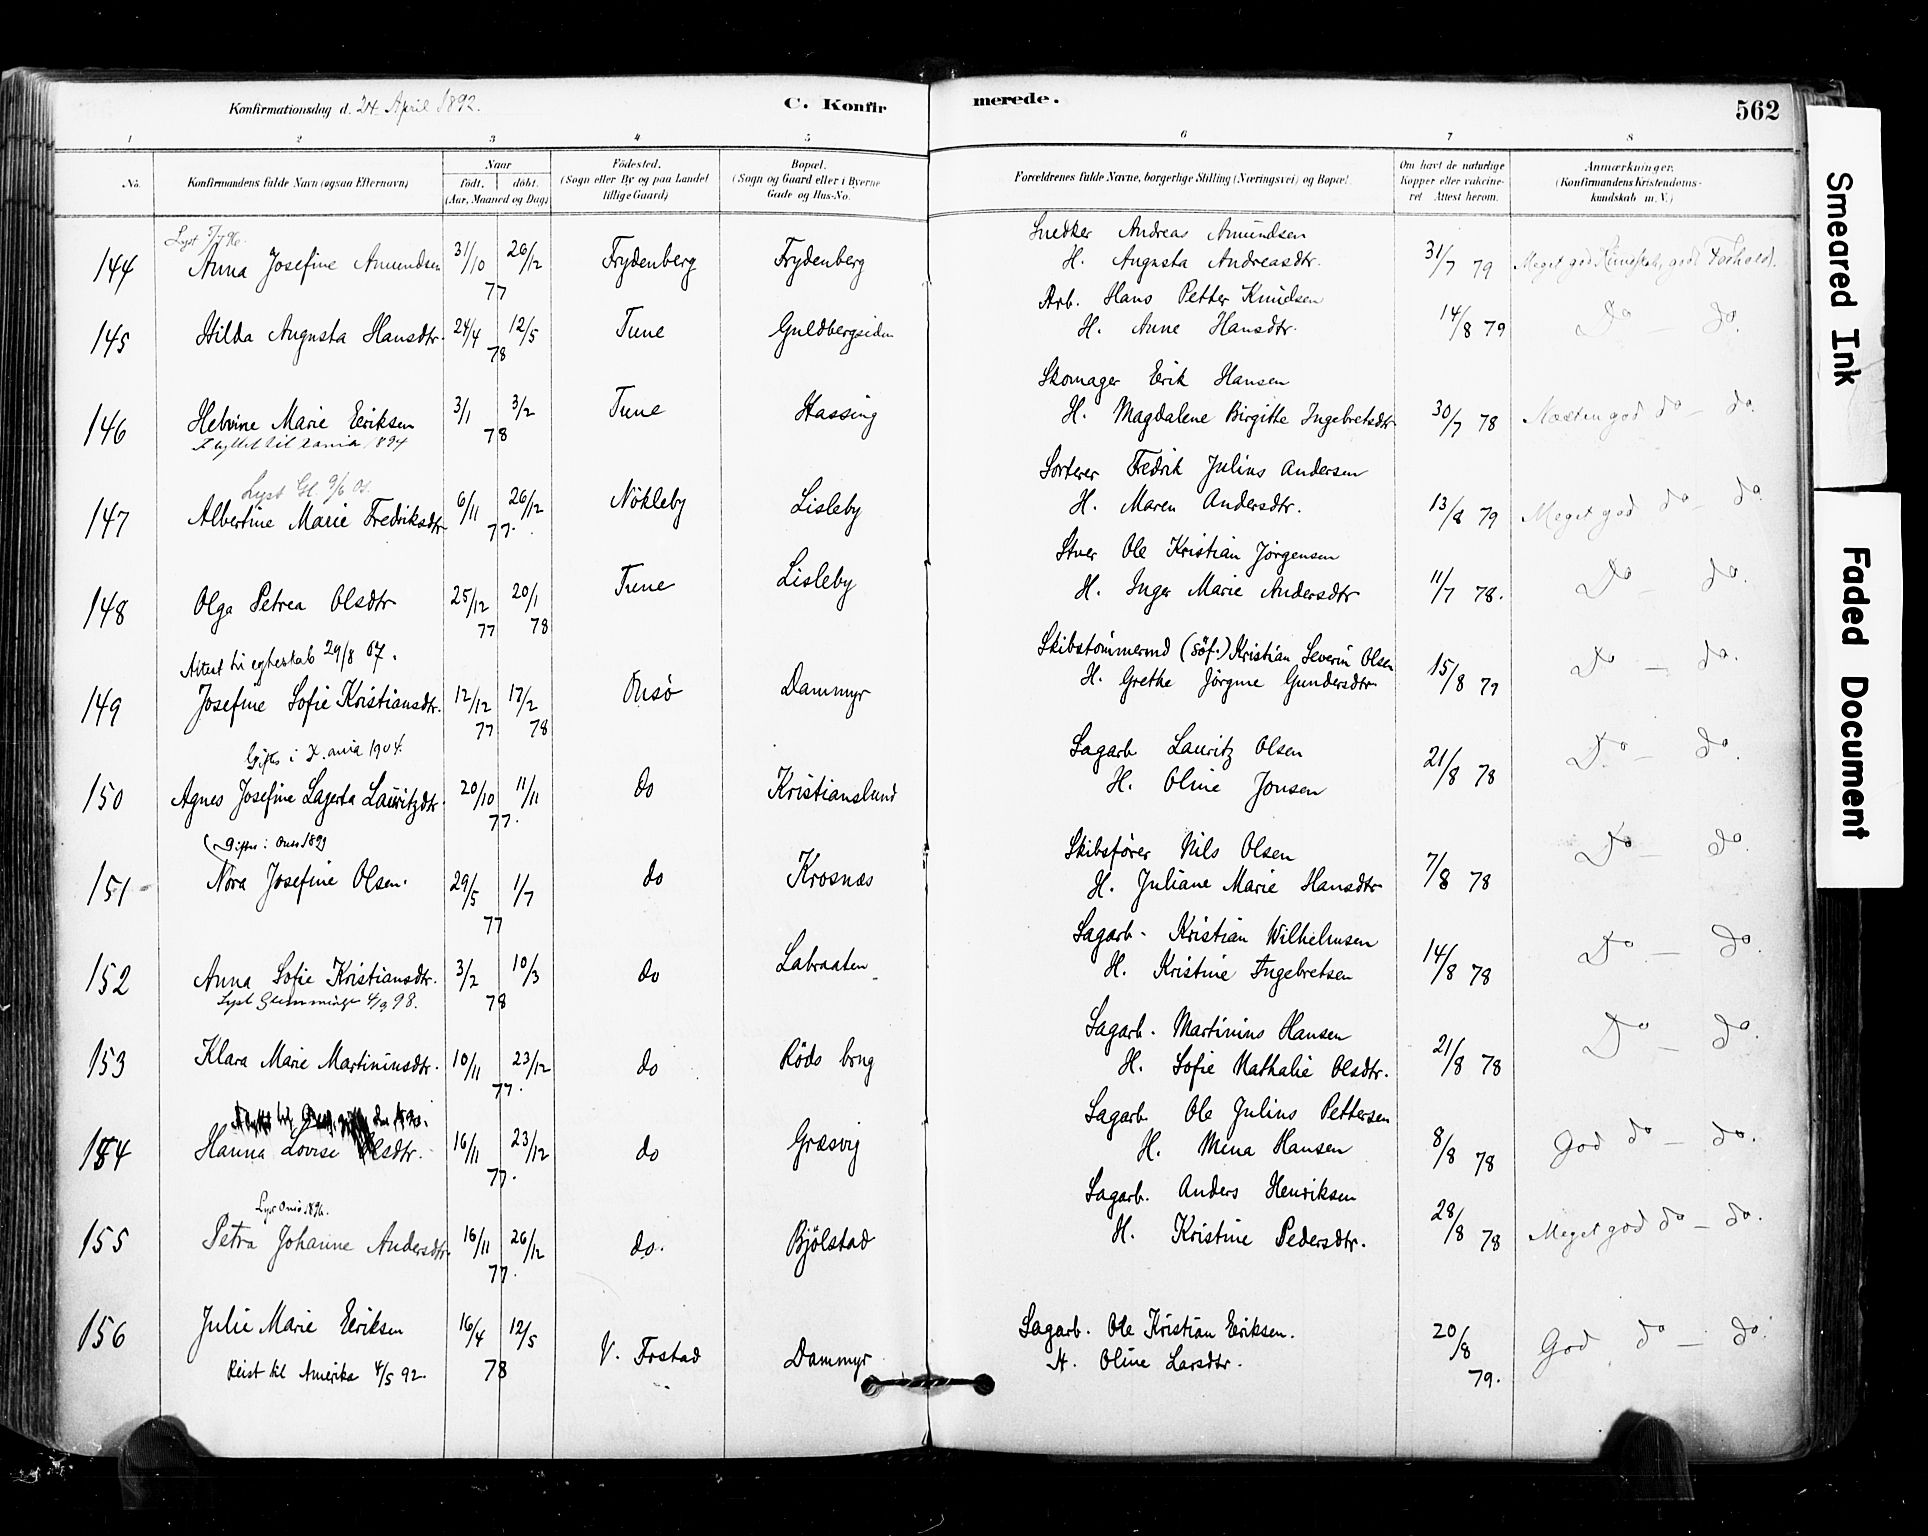 Konfirmationsdag d. 24 April 1892.
C. Konfirmerede.
562
1 2 3 4 5 6 7 8
No. Konfirmandens fulde Navn (ogsaa Efternavn) Naar födt. döbt. (Aar, Maaned og Dag) Födested. (Sogn eller By og paa Landet tillige Gaard) Bopæl. (Sogn og Gaard eller i Byerne Gade og Hus-No. Forældrenes fulde Navne, borgerlige Stilling (Næringsvei) og Bopæl. Om havt de naturlige Kopper eller vakcineret Attest herom. Anmærkninger. (Konfirmandens Kristendomskundskab m. V.)
Lyst 5/7 96.
144 Anna Josefine Amundsen 31/10 26/12 77 Frydenberg Frydenberg Snedker Andreas Amundsen
H. Augusta Andreasdtr. 31/7 79 Meget god Kundskab, godt Forhold.
145 Hilda Augusta Hansdtr. 24/4 12/5 78 Tune Guldbergsiden Arb. Hans Petter Knudsen
H. Anne Hansdtr. 14/8 79 Do — do.
146 Helvine Marie Eriksen 3/1 3/2 78 Tune Hassing Skomager Erik Hansen
H. Magdalene Birgitte Ingebretsdtr 30/7 78 Næsten god do — do.
Flyttet til Xania 1894
Lyst Gl. 9/6 01.
147 Albertine Marie Fredriksdtr 6/11 26/12 77. Nökleby Lisleby Sorterer Fredrik Julius Andersen
H. Maren Andersdtr. 13/8 79 Meget god do — do.
148 Olga Petrea Olsdtr 25/12 77 20/1 78 Tune Lisleby Stuer Ole Kristian Jörgensen
H. Inger Marie Andersdtr 11/7 78. Do — do.
Attest til egteskab 29/8 07.
149 Josefine Sofie Kristiansdtr. 12/12 77 17/2 78 Onsö Dammyr Skibstömmermd (Söf.) Kristian Severin Olsen
H. Grethe Jörgine Gundersdtr 15/8 79 Do — do.
Gift i X.ania 1904.
150 Agnes Josefine Lagerta Lauritzdtr. 20/10 11/11 77. do Kristianslund Sagarb Lauritz Olsen
H. Oline Jonsen 21/8 78 Do — do.
(Gift i Onsö 1899
151 Nora Josefine Olsen. 29/5 1/7 77 do Krosnæs Skibsförer Nils Olsen
H. Juliane Marie Hansdtr 7/8 78 Do — do.
152 Anna Sofie Kristiansdtr. 3/2 10/3 78 do Labraaten Sagarb. Kristian Wilhelmsen
H. Kristine Ingebretsen 14/8 78 Do — do.
Lyst Glemminge 4/9 98.
153 Klara Marie Martiniusdtr. 10/11 23/12 77. do Röds brug Sagarb. Martinius Hansen
H. Sofie Mathalie Olsdtr. 21/8 78 Do — do.
154 Hanna Lovise Olsdtr. 16/11 23/12 77. do Græsvig Sagarb Ole Julius Pettersen
H. Mina Hansen 8/8 78 God do — do.
Lyst Onsö 1896.
155 Petra Johanne Andersdtr. 16/11 26/12 77. do. Bjölstad Sagarb. Anders Henriksen
H. Kristine Pedersdtr. 28/8 78 Meget god do — do.
156 Julie Marie Eriksen 16/4 12/5 78 V. Frstad Dammyr Sagarb. Ole Kristian Eriksen.
H. Oline Larsdtr. 20/8 79. God do — do.
Reist til Amerika 4/5 92.
Smeared Ink
Faded Document